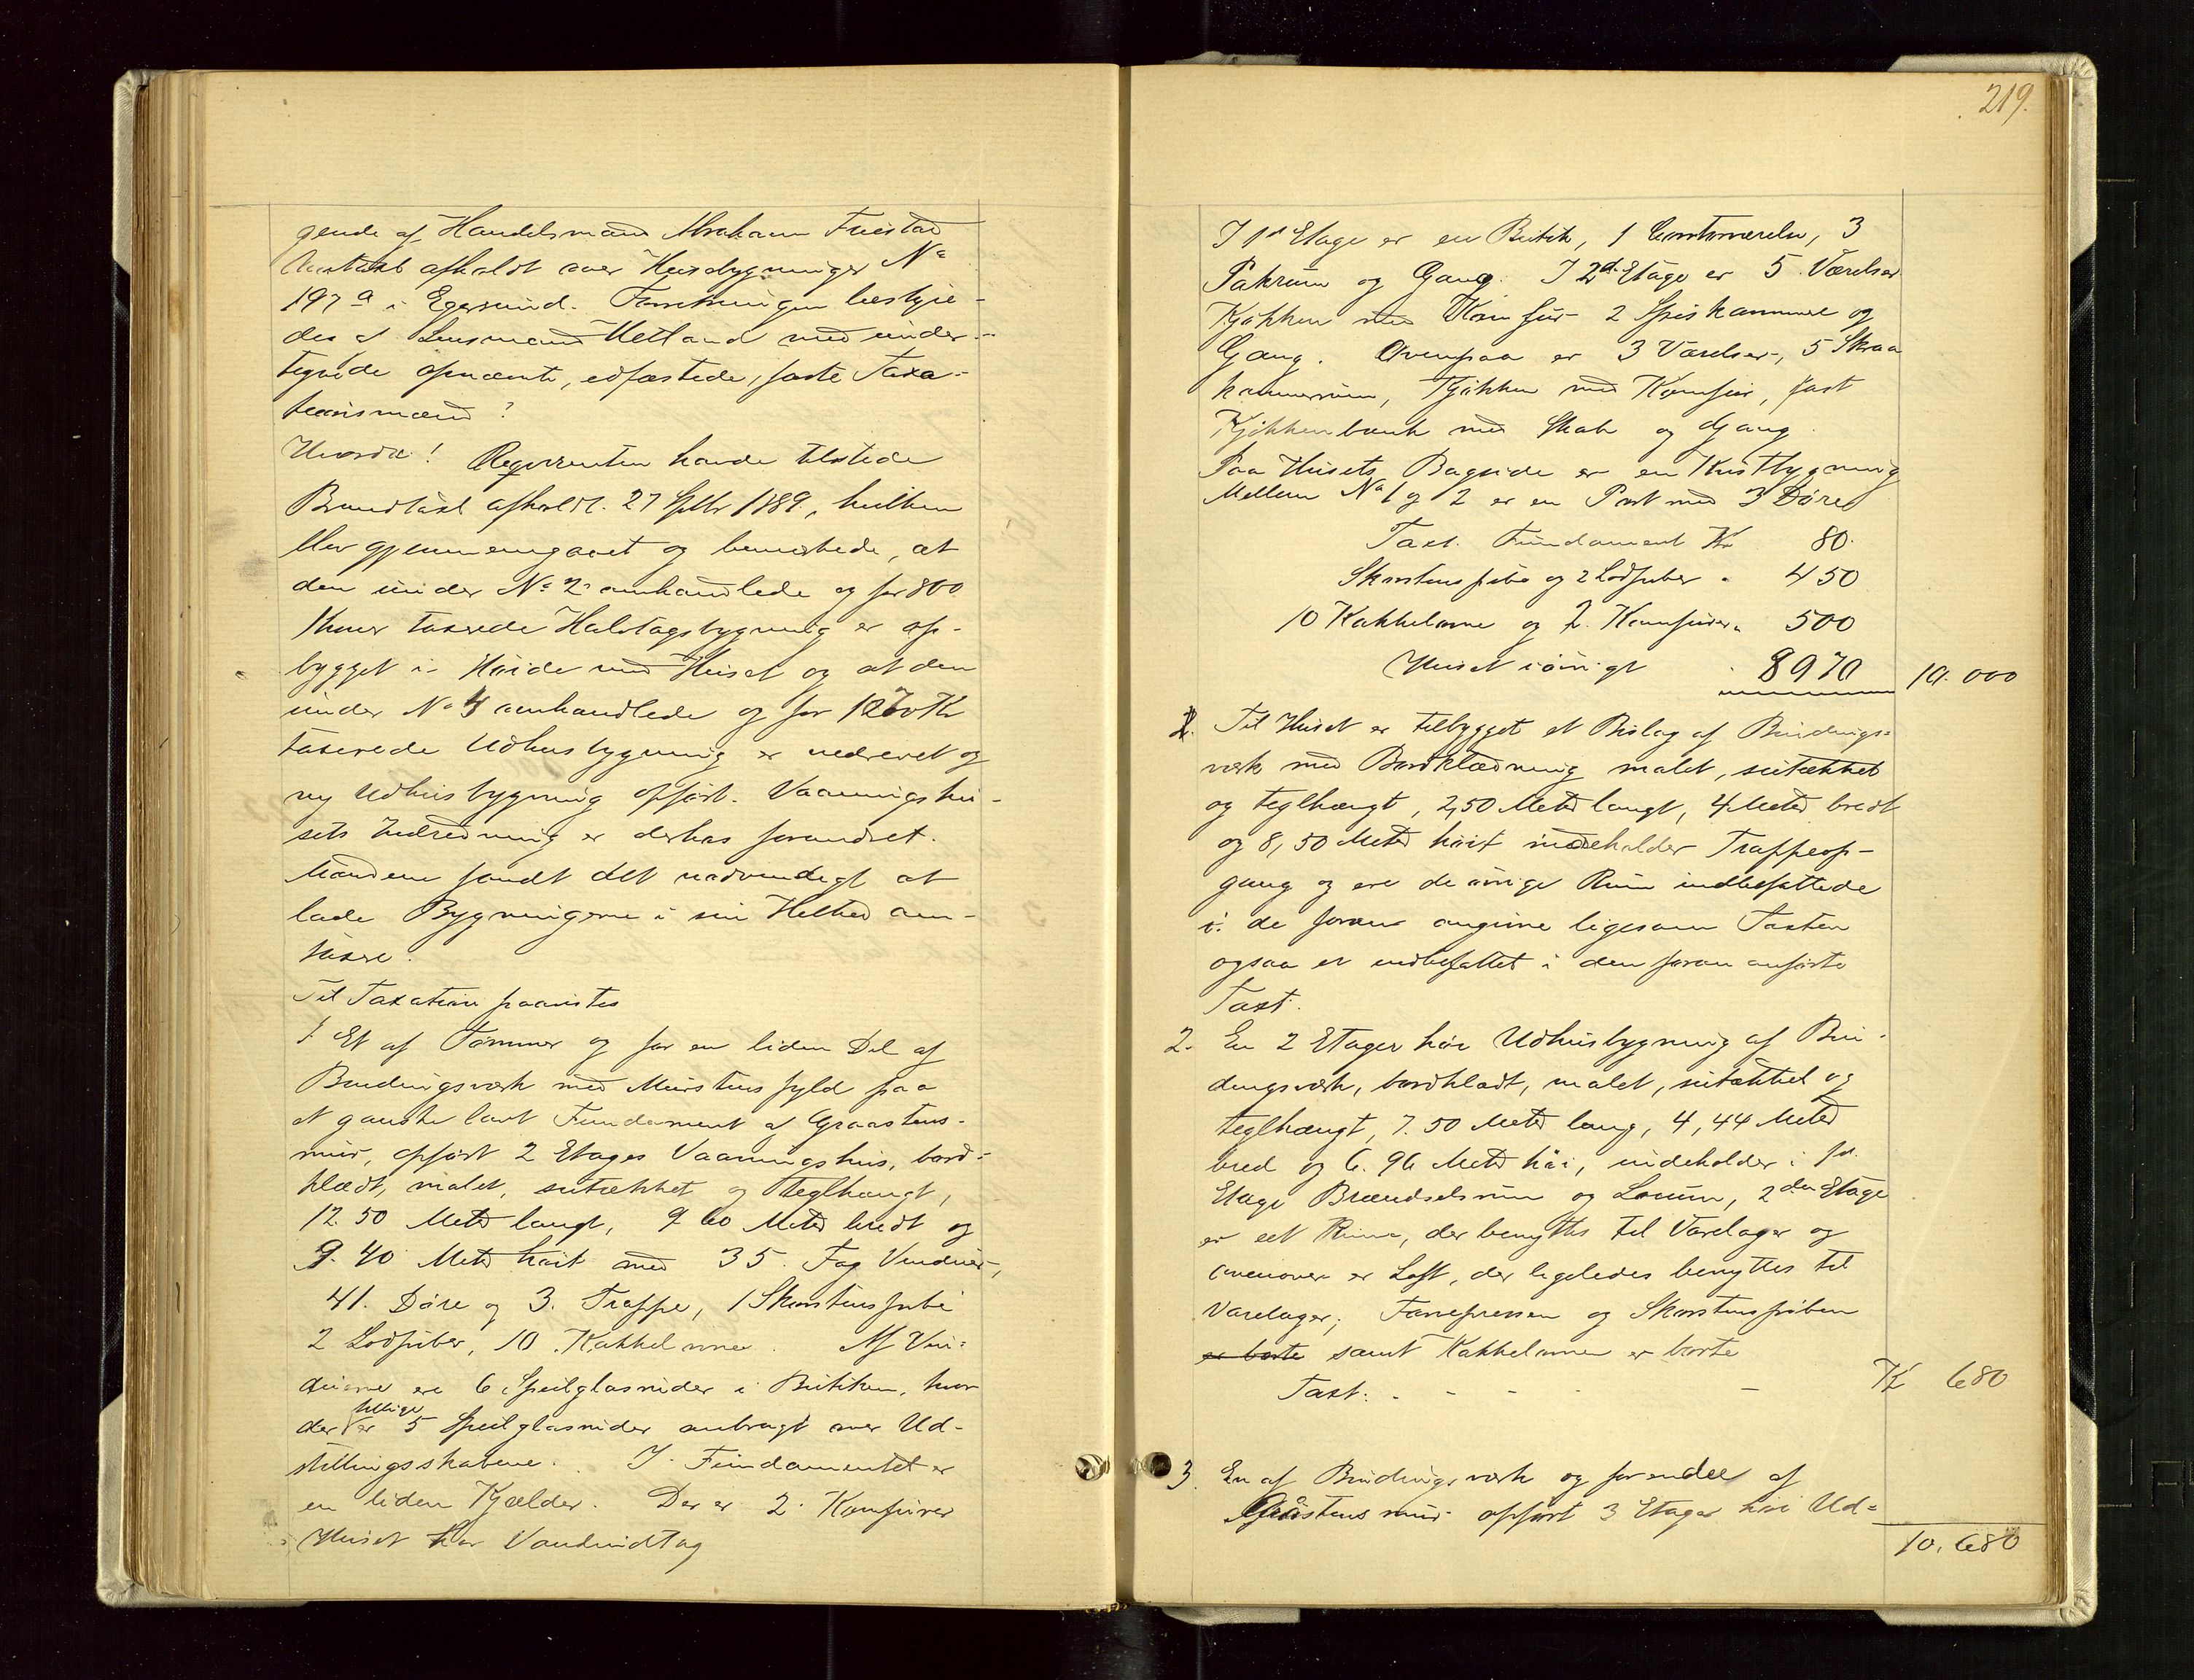 gende af Handelsmand Abraham Friestad
afholdt over Husbygninger No
197a i Egersund. Forretningen bestyre-
des af Lensmand Hetland med under-
tegnede opnævnte, edfæstede, faste Taxa-
tionsmænd?
Hvorda! Reqvirenten havde tilstede
Brandtaxt afholdt. 27 Septbr 1889, hvilken
blev gjennemgaaet og bemærkede, at
den under No 2 omhandlede og for 800
Kroner taxerede Halvtagsbygning er op-
bygget i Høide med Huset og at den
under No 4 omhandlede og for 1200 Kr
taxerede Udhusbygning er nedrevet og
ny Udhusbygning opført. Vaaningshu-
sets Indredning er derhos forandret.
Mændene fandt det nødvendigt at
lade Bygningerne i sin Helhed om-
taxere.
Til Taxation paavistes
1. Et af Tømmer og for en liden Del af
Bindingsværk med Murstens fyld paa
et ganske lavt Fundament af Graastens-
mur, opført 2 Etages Vaaningshus, bord-
klædt, malet, sutækket og teglhængt,
12.50 Meter langt, 9.60 Meter bredt og
9.40 Meter høit med 35. Fag Vinduer,
41. Døre og 3. Trappe, 1 Skorstenspibe
2 Lodpiber, 10 Kakkelovne. Af Vin-
duerne ere 6 Speilglasruder i Butiken, hvor
der tillige er 5 Speilglasruder anbragt over Ud-
stillingsskabene. I Fundamentet er
en liden Kjælder. Der er 2. Komfurer
Huset har Vandindtag
219.
I 1st Etage er en Butik, 1 Contorværelse, 3
Pakrum og Gang. I 2d Etage er 5 Værelser
Kjøkken med Komfur 2 Spiskammere og
Gang. Ovenpaa er 3 Værelser, 5 Skraa
kammerrum, Kjøkken med Komfur, fast
Kjøkkenbænk med Skab og Gang.
Paa Husets Bagside er en Kvistbygning
Mellem No 1 og 2 er en Port med 3 Døre
Taxt. Fundament Kr 80.
Skorstenspibe og 2 Lodpiber " 450
10 Kakkelovne og 2. Komfurer " 500
Huset iøvrigt " 8970 10.000
2. Til Huset er tilbygget et Bislag af Bindings-
værk med Bordklædning malet, sutækket
og teglhængt, 2,50 Meter langt, 4 Meter bredt
og 8,50 Meter høit indeholder Trappeop-
gang og ere de øvrige Rum indbefattede
i de foran angivne ligesom Taxten
ogsaa er indbefattet i den foran anførte
Taxt.
2. En 2 Etager høi Udhusbygning af Bin-
dingsværk, bordklædt, malet, sutækket og
teglhængt, 7.50 Meter lang, 4,44 Meter
bred og 6.96 Meter høi, indeholder i 1st
Etage Brændselsrum og Locum, 2den Etage
er et Rum, der benyttes til Varelager og
ovenover er Loft, der ligeledes benyttes til
Varelager; Farvepressen og Skorstenspiben
er borte samt Kakkelovnen er borte
Taxt: - - - - - Kr 680
3. En af Bindingsværk og for endel af
Gråstens mur opført 3 Etager høi Ud-
10.680